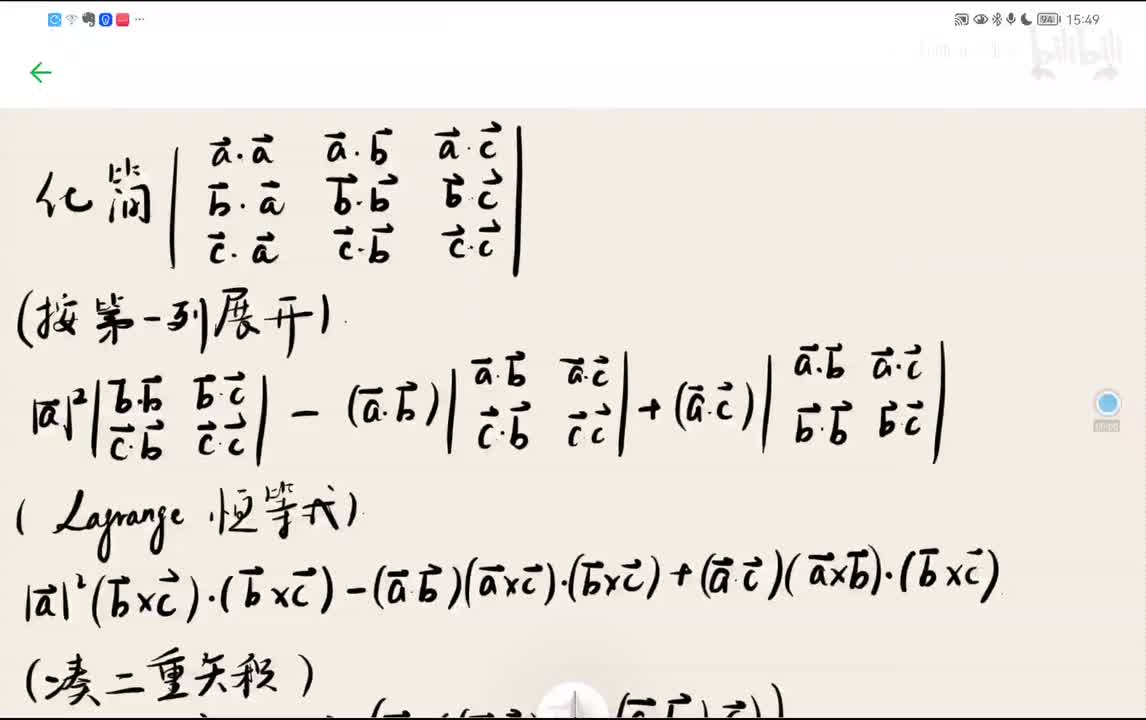 94 15:49
bilibili
化简 | a⃗·a⃗ a⃗·b⃗ a⃗·c⃗ |
| b⃗·a⃗ b⃗·b⃗ b⃗·c⃗ |
| c⃗·a⃗ c⃗·b⃗ c⃗·c⃗ |
(按第一列展开).
|a⃗|² | b⃗·b⃗ b⃗·c⃗ | - (a⃗·b⃗) | a⃗·b⃗ a⃗·c⃗ | + (a⃗·c⃗) | a⃗·b⃗ a⃗·c⃗ |
| c⃗·b⃗ c⃗·c⃗ | | c⃗·b⃗ c⃗·c⃗ | | b⃗·b⃗ b⃗·c⃗ |
( Lagrange 恒等式).
|a⃗|²(b⃗×c⃗)·(b⃗×c⃗) - (a⃗·b⃗)(a⃗×c⃗)·(b⃗×c⃗) + (a⃗·c⃗)(a⃗×b⃗)·(b⃗×c⃗)
(凑二重矢积)